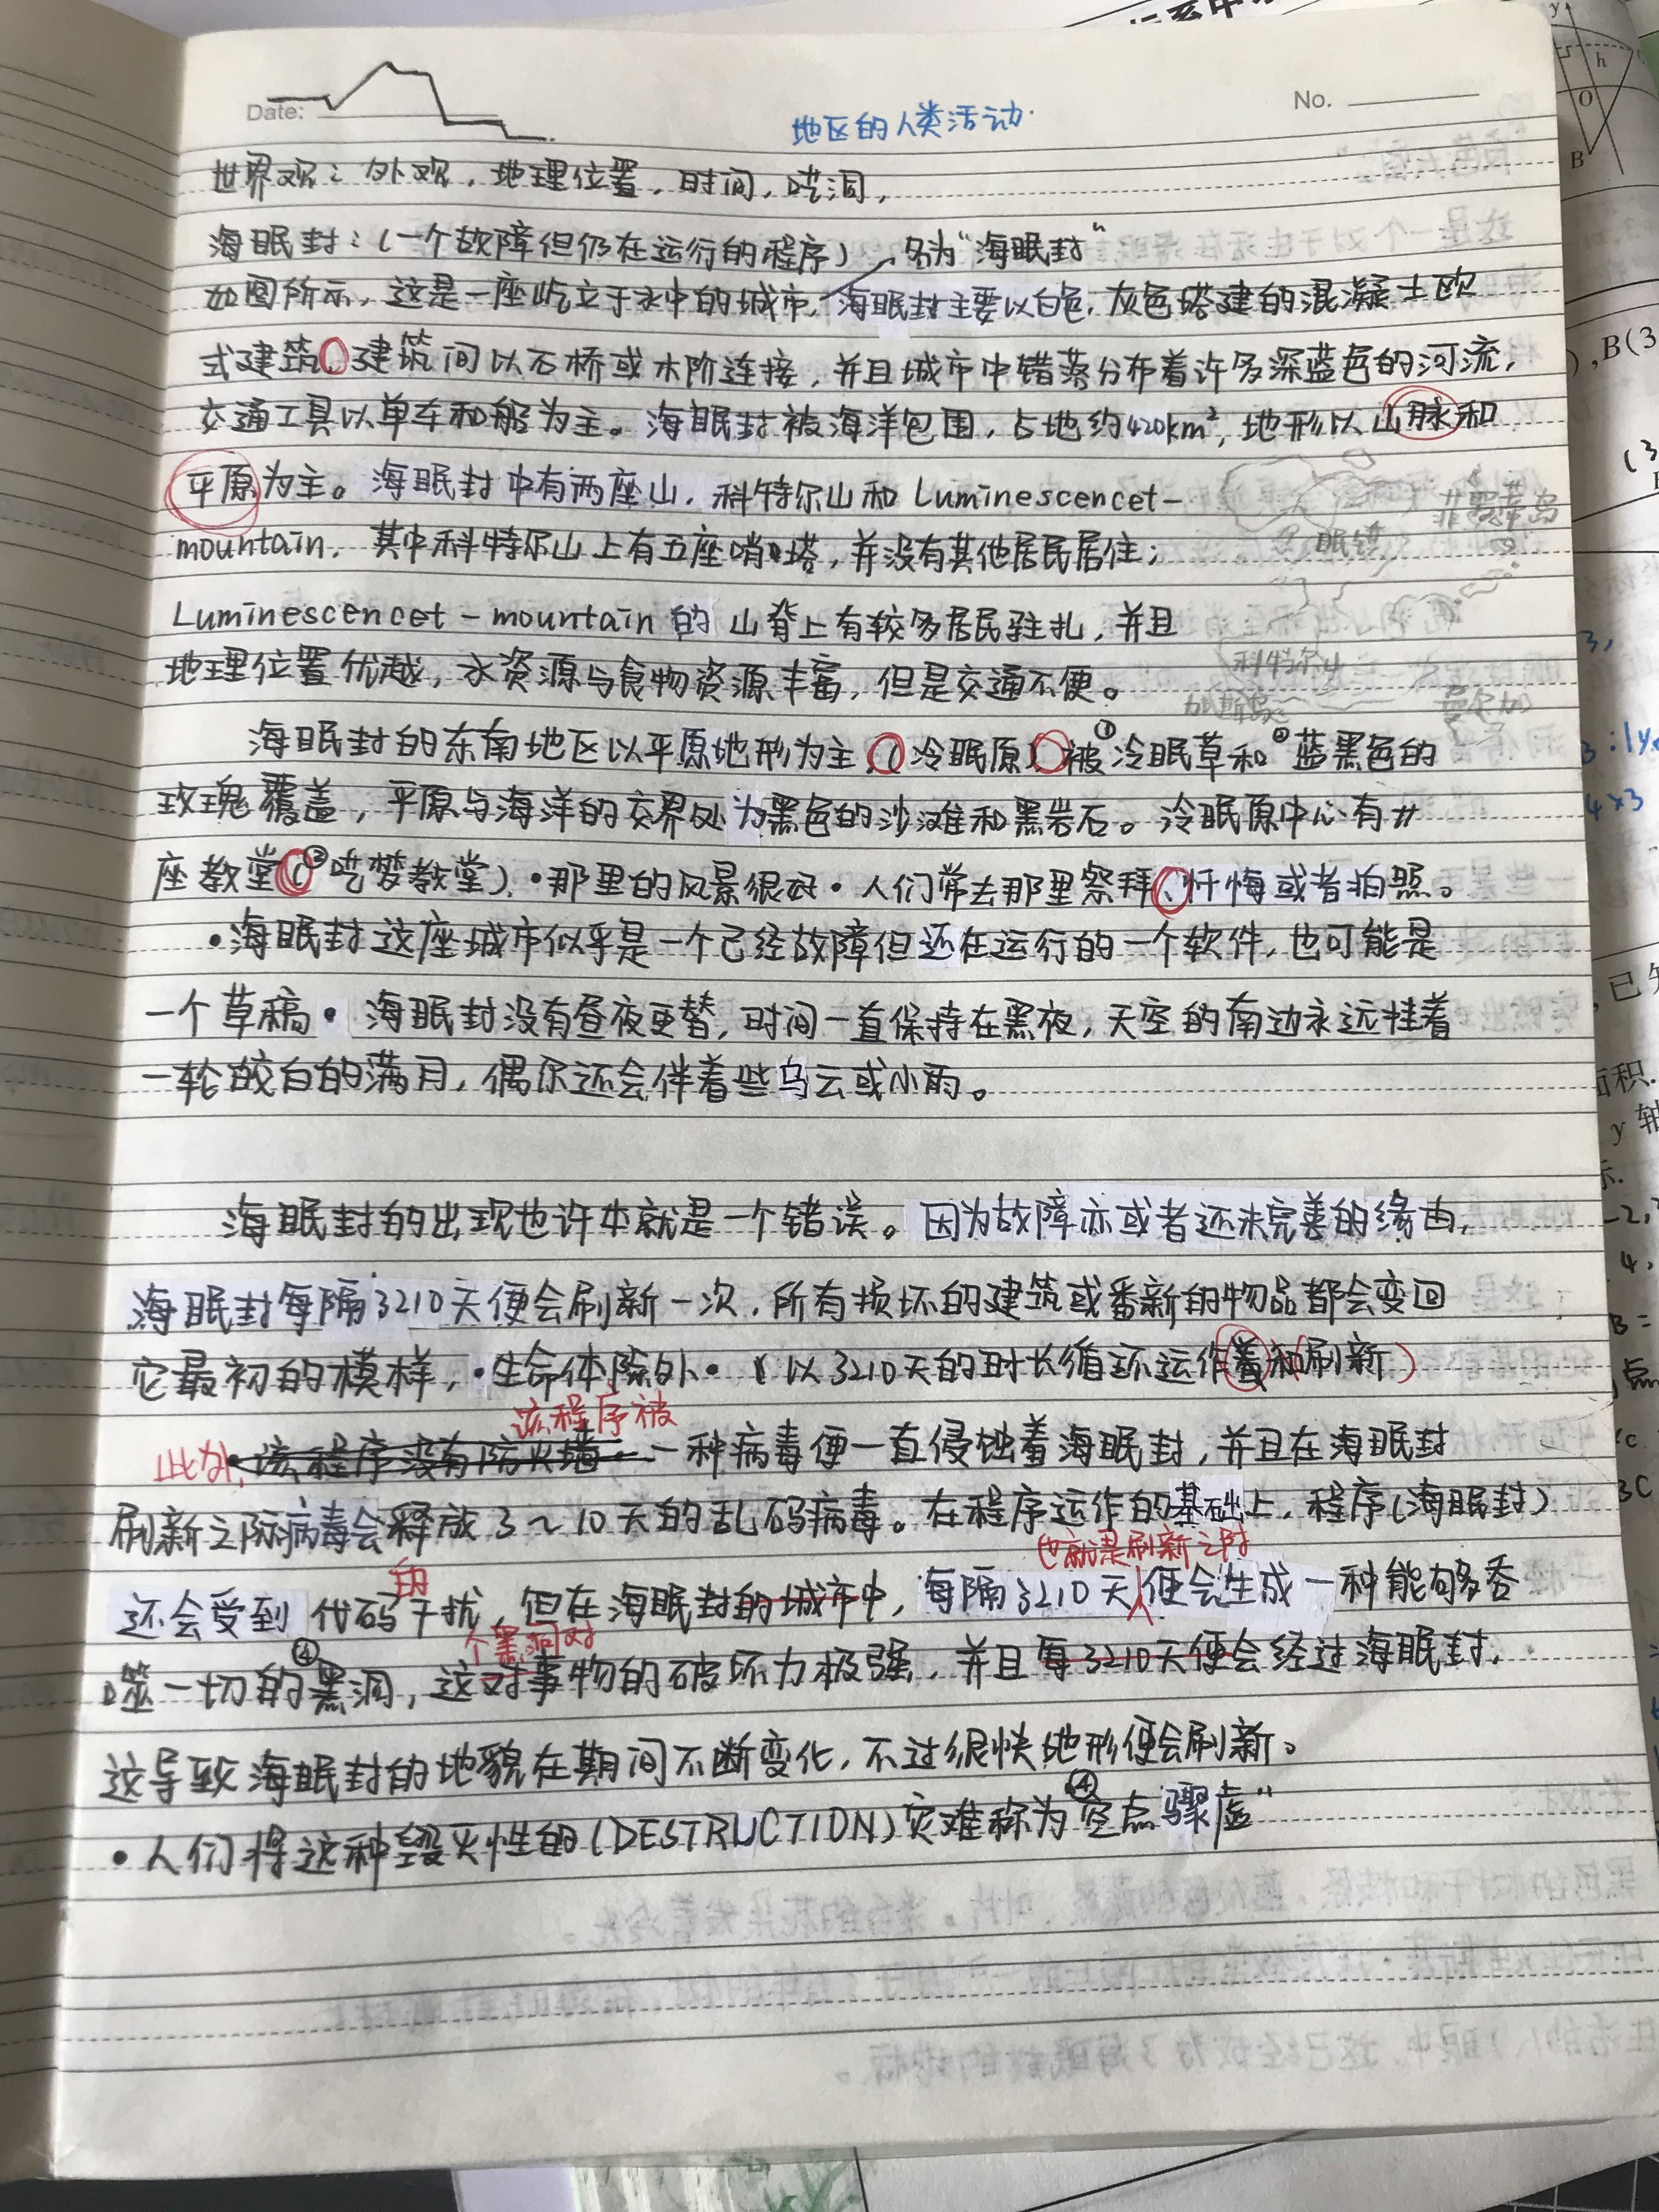 Date:
No.
地区的人类活动.
世界观：外观，地理位置，时间，呓洞，
海眠封：（一个故障但仍在运行的程序） 名为“海眠封”
如图所示，这是一座屹立于水中的城市，海眠封主要以白色，灰色搭建的混凝土欧
式建筑，建筑间以石桥或木阶连接，并且城市中错落分布着许多深蓝色的河流，
交通工具以单车和船为主。海眠封被海洋包围，占地约420km²，地形以山脉和
平原为主。海眠封中有两座山，科特尔山和 Luminescencet-
mountain，其中科特尔山上有五座哨塔，并没有其他居民居住；
眠镇
Luminescencet-mountain的山脊上有较多居民驻扎，并且
科特尔山
地理位置优越，水资源与食物资源丰富，但是交通不便。
海眠封的东南地区以平原地形为主，（冷眠原）被①冷眠草和②蓝黑色的
玫瑰覆盖，平原与海洋的交界处为黑色的沙滩和黑岩石。冷眠原中心有一
座教堂（③呓梦教堂）·那里的风景很好·人们常去那里祭拜、忏悔或者拍照。
·海眠封这座城市似乎是一个已经故障但还在运行的一个软件，也可能是
一个草稿· 海眠封没有昼夜更替，时间一直保持在黑夜，天空的南边永远挂着
一轮皎白的满月，偶尔还会伴着些乌云或小雨。
海眠封的出现也许本就是一个错误。因为故障亦或者还未完善的缘由，
海眠封每隔3210天便会刷新一次，所有损坏的建筑或番新的物品都会变回
它最初的模样，·生命体除外·（以3210天的时长循环运作着和刷新）
该程序被
此外，该程序没有防火墙·一种病毒便一直侵蚀着海眠封，并且在海眠封
刷新之际病毒会释放3~10天的乱码病毒。在程序运作的基础上，程序（海眠封）
也就是刷新之时
还会受到代码的干扰，但在海眠封的城市中，每隔3210天便会生成一种能够吞
个黑洞对
噬一切的④黑洞，这对事物的破坏力极强，并且每3210天便会经过海眠封，
这导致海眠封的地貌在期间不断变化，不过很快地形便会刷新。
·人们将这种毁灭性的（DESTRUCTION）灾难称为④空点骤虚”